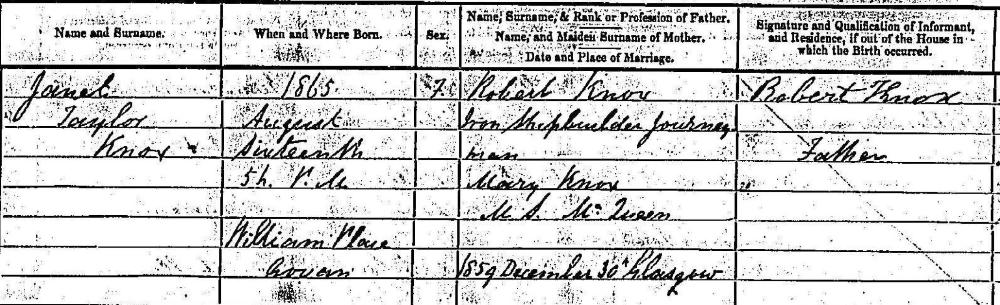 Name and Surname.
When and Where Born.
Sex.
Name, Surname, & Rank or Profession of Father.
Name, and Maiden Surname of Mother.
Date and Place of Marriage.
Signature and Qualification of Informant,
and Residence, if out of the House in
which the Birth occurred.
Janet
Taylor
Knox
1865
August
Sixteenth
5h. P.M.
William Place
Govan
F
Robert Knox
Iron Shipbuilder Journey
man
Mary Knox
M.S. McQueen
1859 December 30th Glasgow
Robert Knox
Father